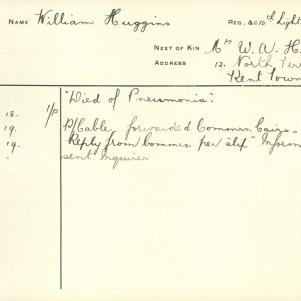 NAME William Huggins REG. &C 10th Light
NEXT OF KIN Mrs W. A. H
ADDRESS 12. North Ter
Kent Town
"Died of Pneumonia".
18. 1/P
19. P/Cable forwarded Commrs. Cairo.
19. Reply from Commrs. per "slip" Inform
sent Inquirer